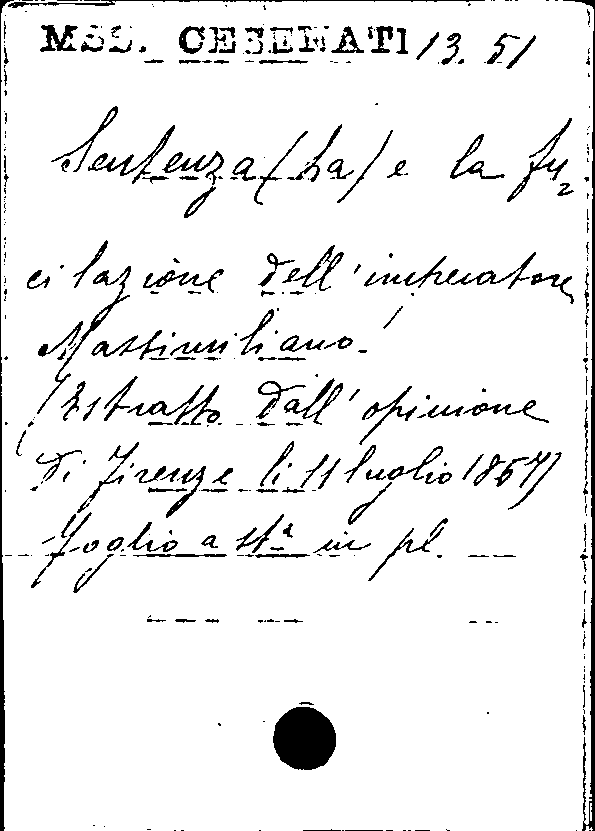 MSS. CESENATI 13.51
Sentenza (La) e la fu=
cilazione dell'imperatore
Massimiliano!
(Estratto dall'opinione
di Firenze li 11 luglio 1867)
Foglio a stª in pl.